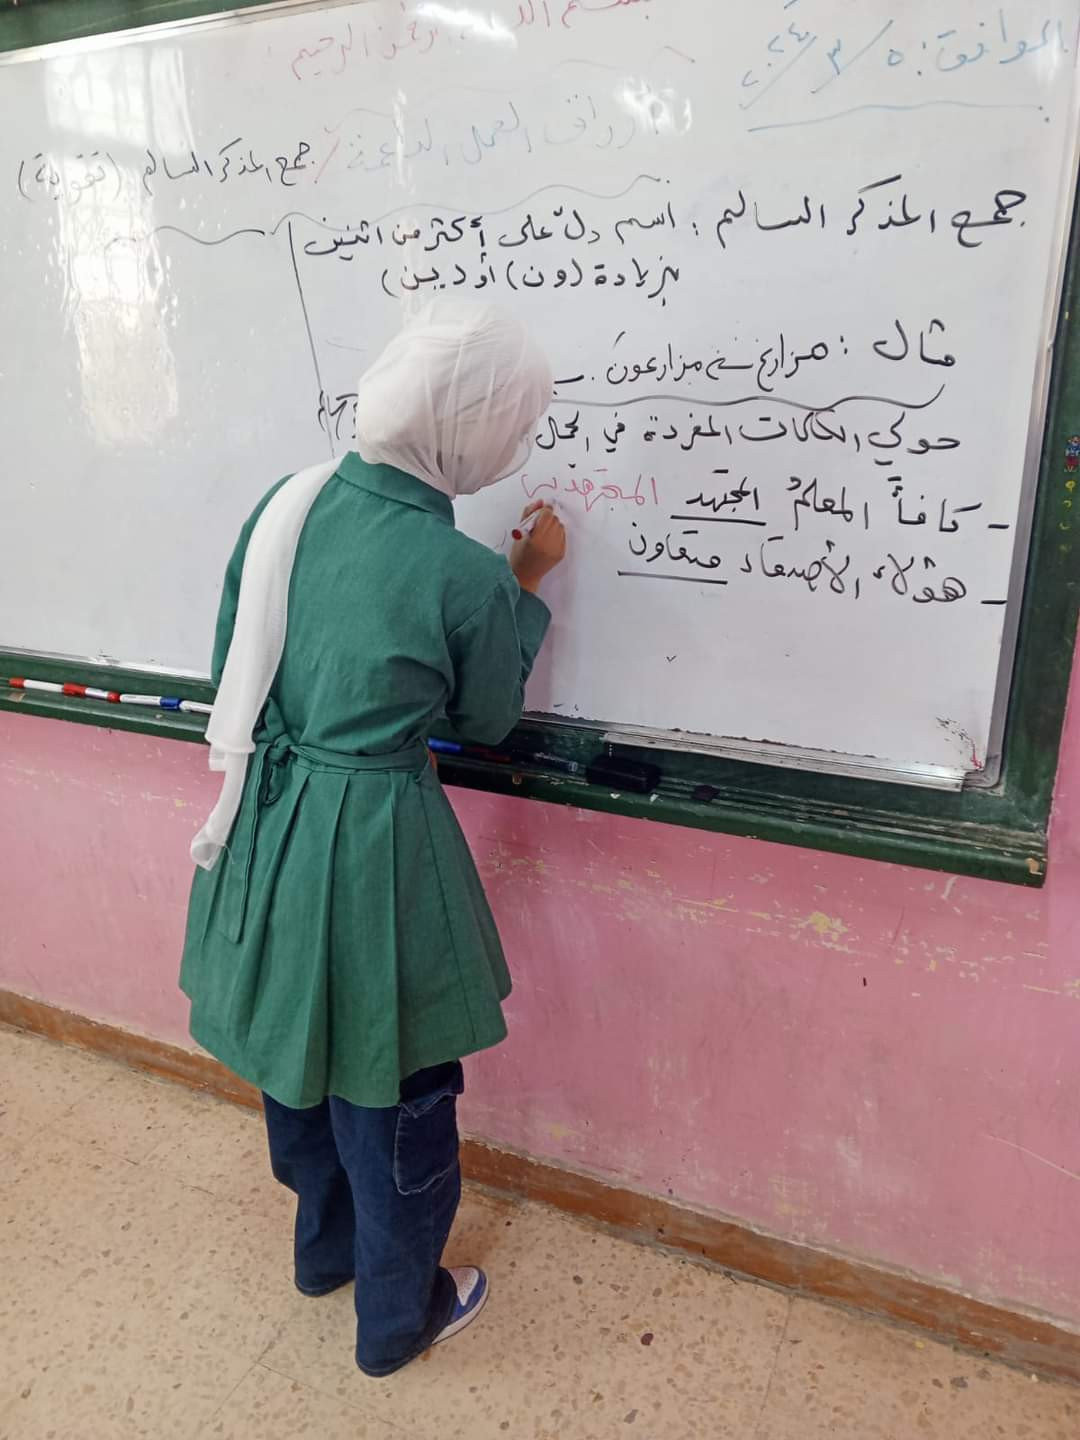 بسم الله الرحمن الرحيم
الموافق: ٥/٣/٢٠٢٤
أوراق العمل الداعمة / جمع المذكر السالم (تقوية)
جمع المذكر السالم: اسم دلّ على أكثر من اثنين
بزيادة (ون) أو (ين)
مثال: مزارع مزارعون
حولي الكلمات المفردة في الجمل
- كافأَ المعلمُ المجتهد المجتهدين
- هؤلاء الأصدقاء متعاون